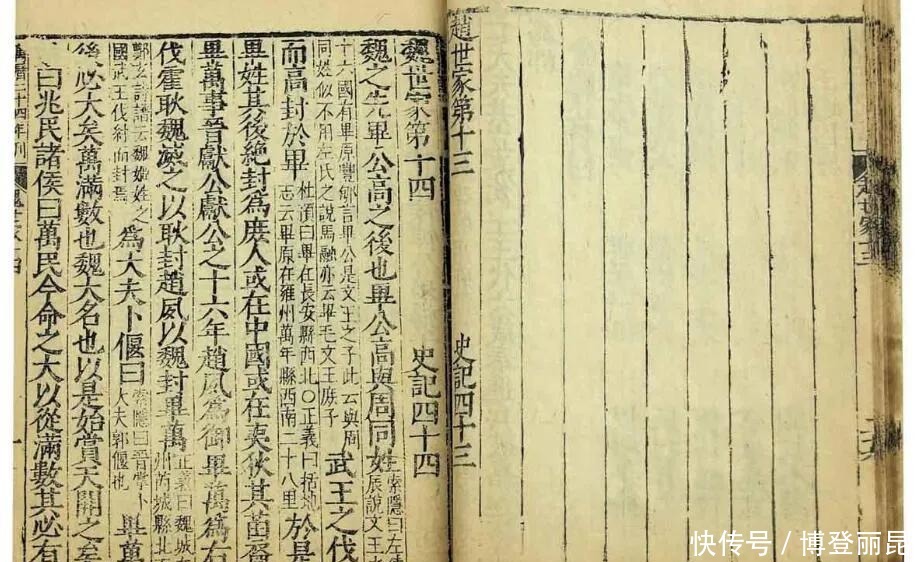 趙世家第十三 史記四十三
魏世家第十四 史記四十四
魏之先畢公高之後也畢公高與周同姓
索隱曰左
辰說文王
十六國有畢原豐郇言畢公是文王之子此云與周
同姓似不用左氏之說馬融亦云畢毛文王庶子
武王之伐
而高封於畢
杜預曰畢在長安縣西北○正義曰括地
志云畢原在雍州萬年縣西南二十八里
於是
畢姓其後絕封為庶人或在中國或在夷狄其苗裔
畢萬事晉獻公獻公之十六年趙夙為御畢萬為右
伐霍耿魏滅之以耿封趙夙以魏封畢萬
正義曰魏城
州芮城縣北
鄭玄詩譜云魏姬姓之
國武王伐紂而封焉
為大夫卜偃曰
索隱曰晉掌卜
大夫郭偃也
畢萬
後必大矣萬滿數也魏大名也以是始賞天開之矣
曰兆民諸侯曰萬民今命之大以從滿數其必有
二十四年刊
快传号/博登丽昆